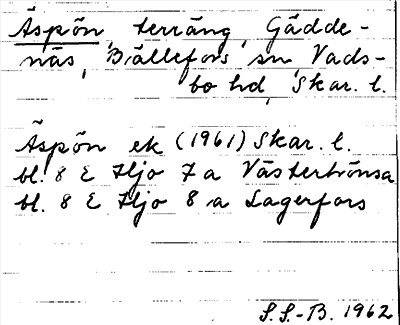 Äspön, terräng, Gädde-
näs, Bällefors sn, Vads-
bo hd, Skar. l.
Äspön ek (1961) Skar. l.
bl. 8 E Hjo 7 a Västerhönsa
bl. 8 E Hjo 8 a Lagerfors
S.S.-B. 1962